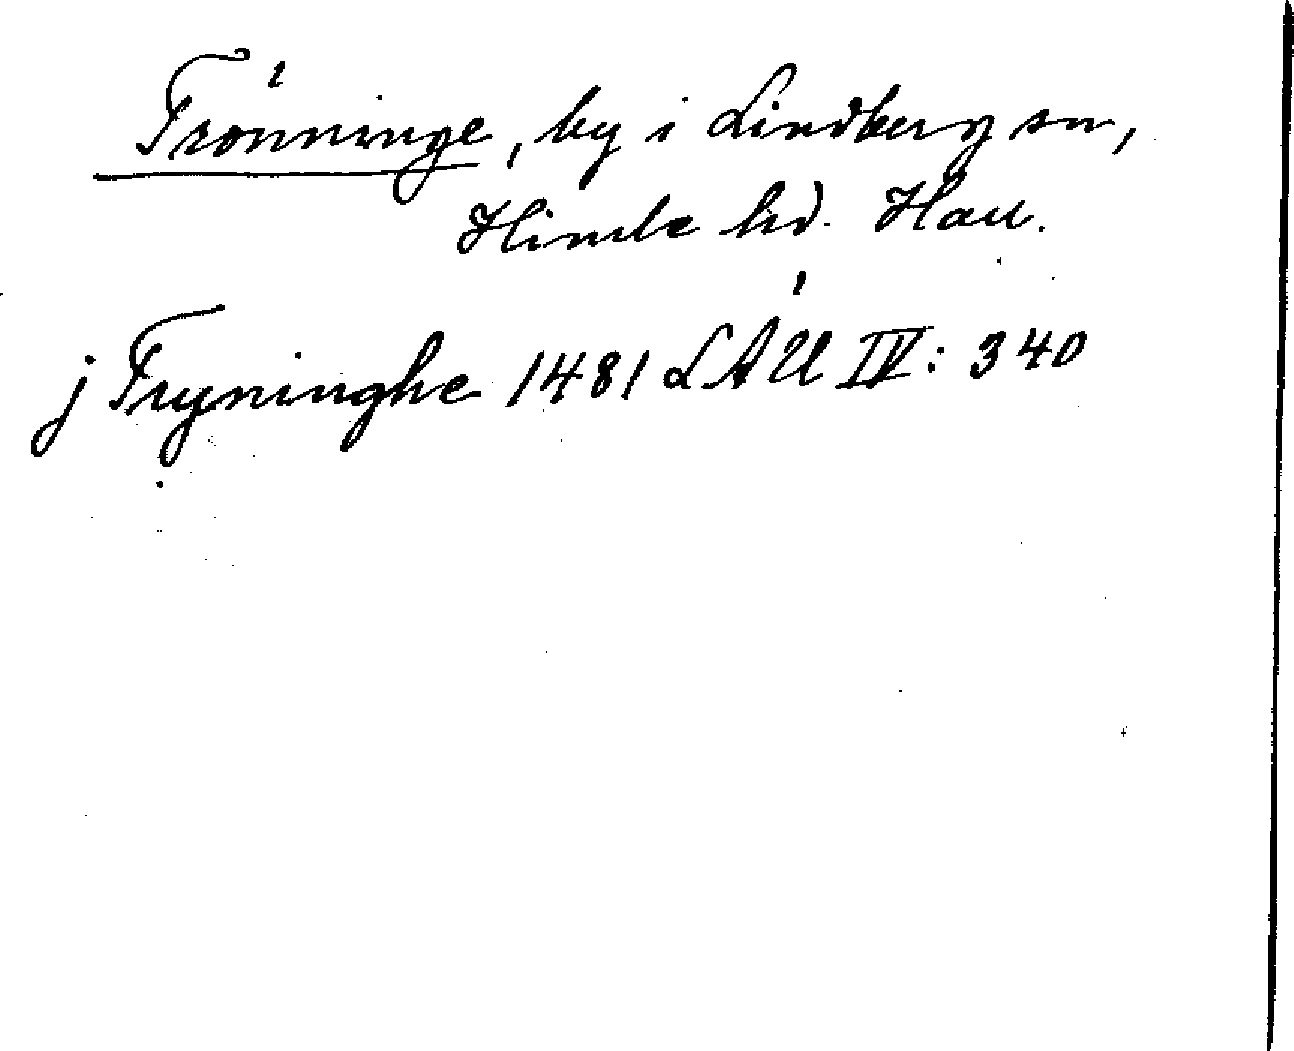 Trönninge, by i Lindberg sn,
Himle hd. Hall.
j Tryninghe 1481 LÅU IV: 340